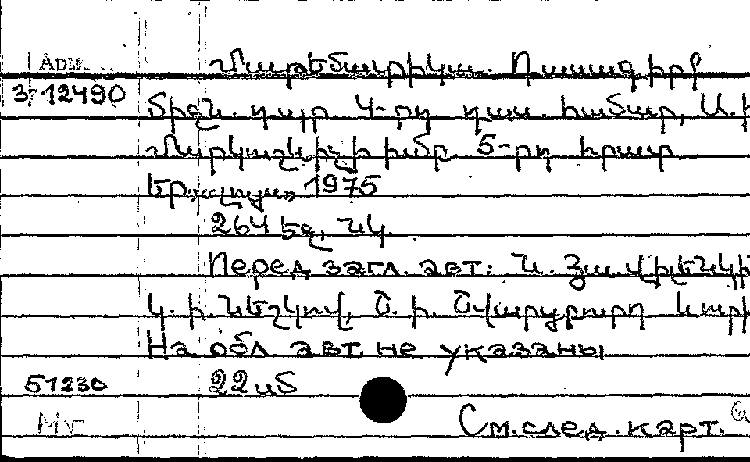 Арм. Մաթեմատիկա. Դասագիրք
3-12490 միջն. դպր 4-րդ դաս. համար, Ա. Ի
Մարկուշևիչի խմբ. 5-րդ հրատ
Եր., 1975
264 եջ, նկ.
Перед загл. авт: Ն. Յա. Վիլենկին
Կ. Ի. Նեշկով, Ս. Ի. Շվարցբուրդ
На обл. авт. не указаны
51230 22
См. след. карт.